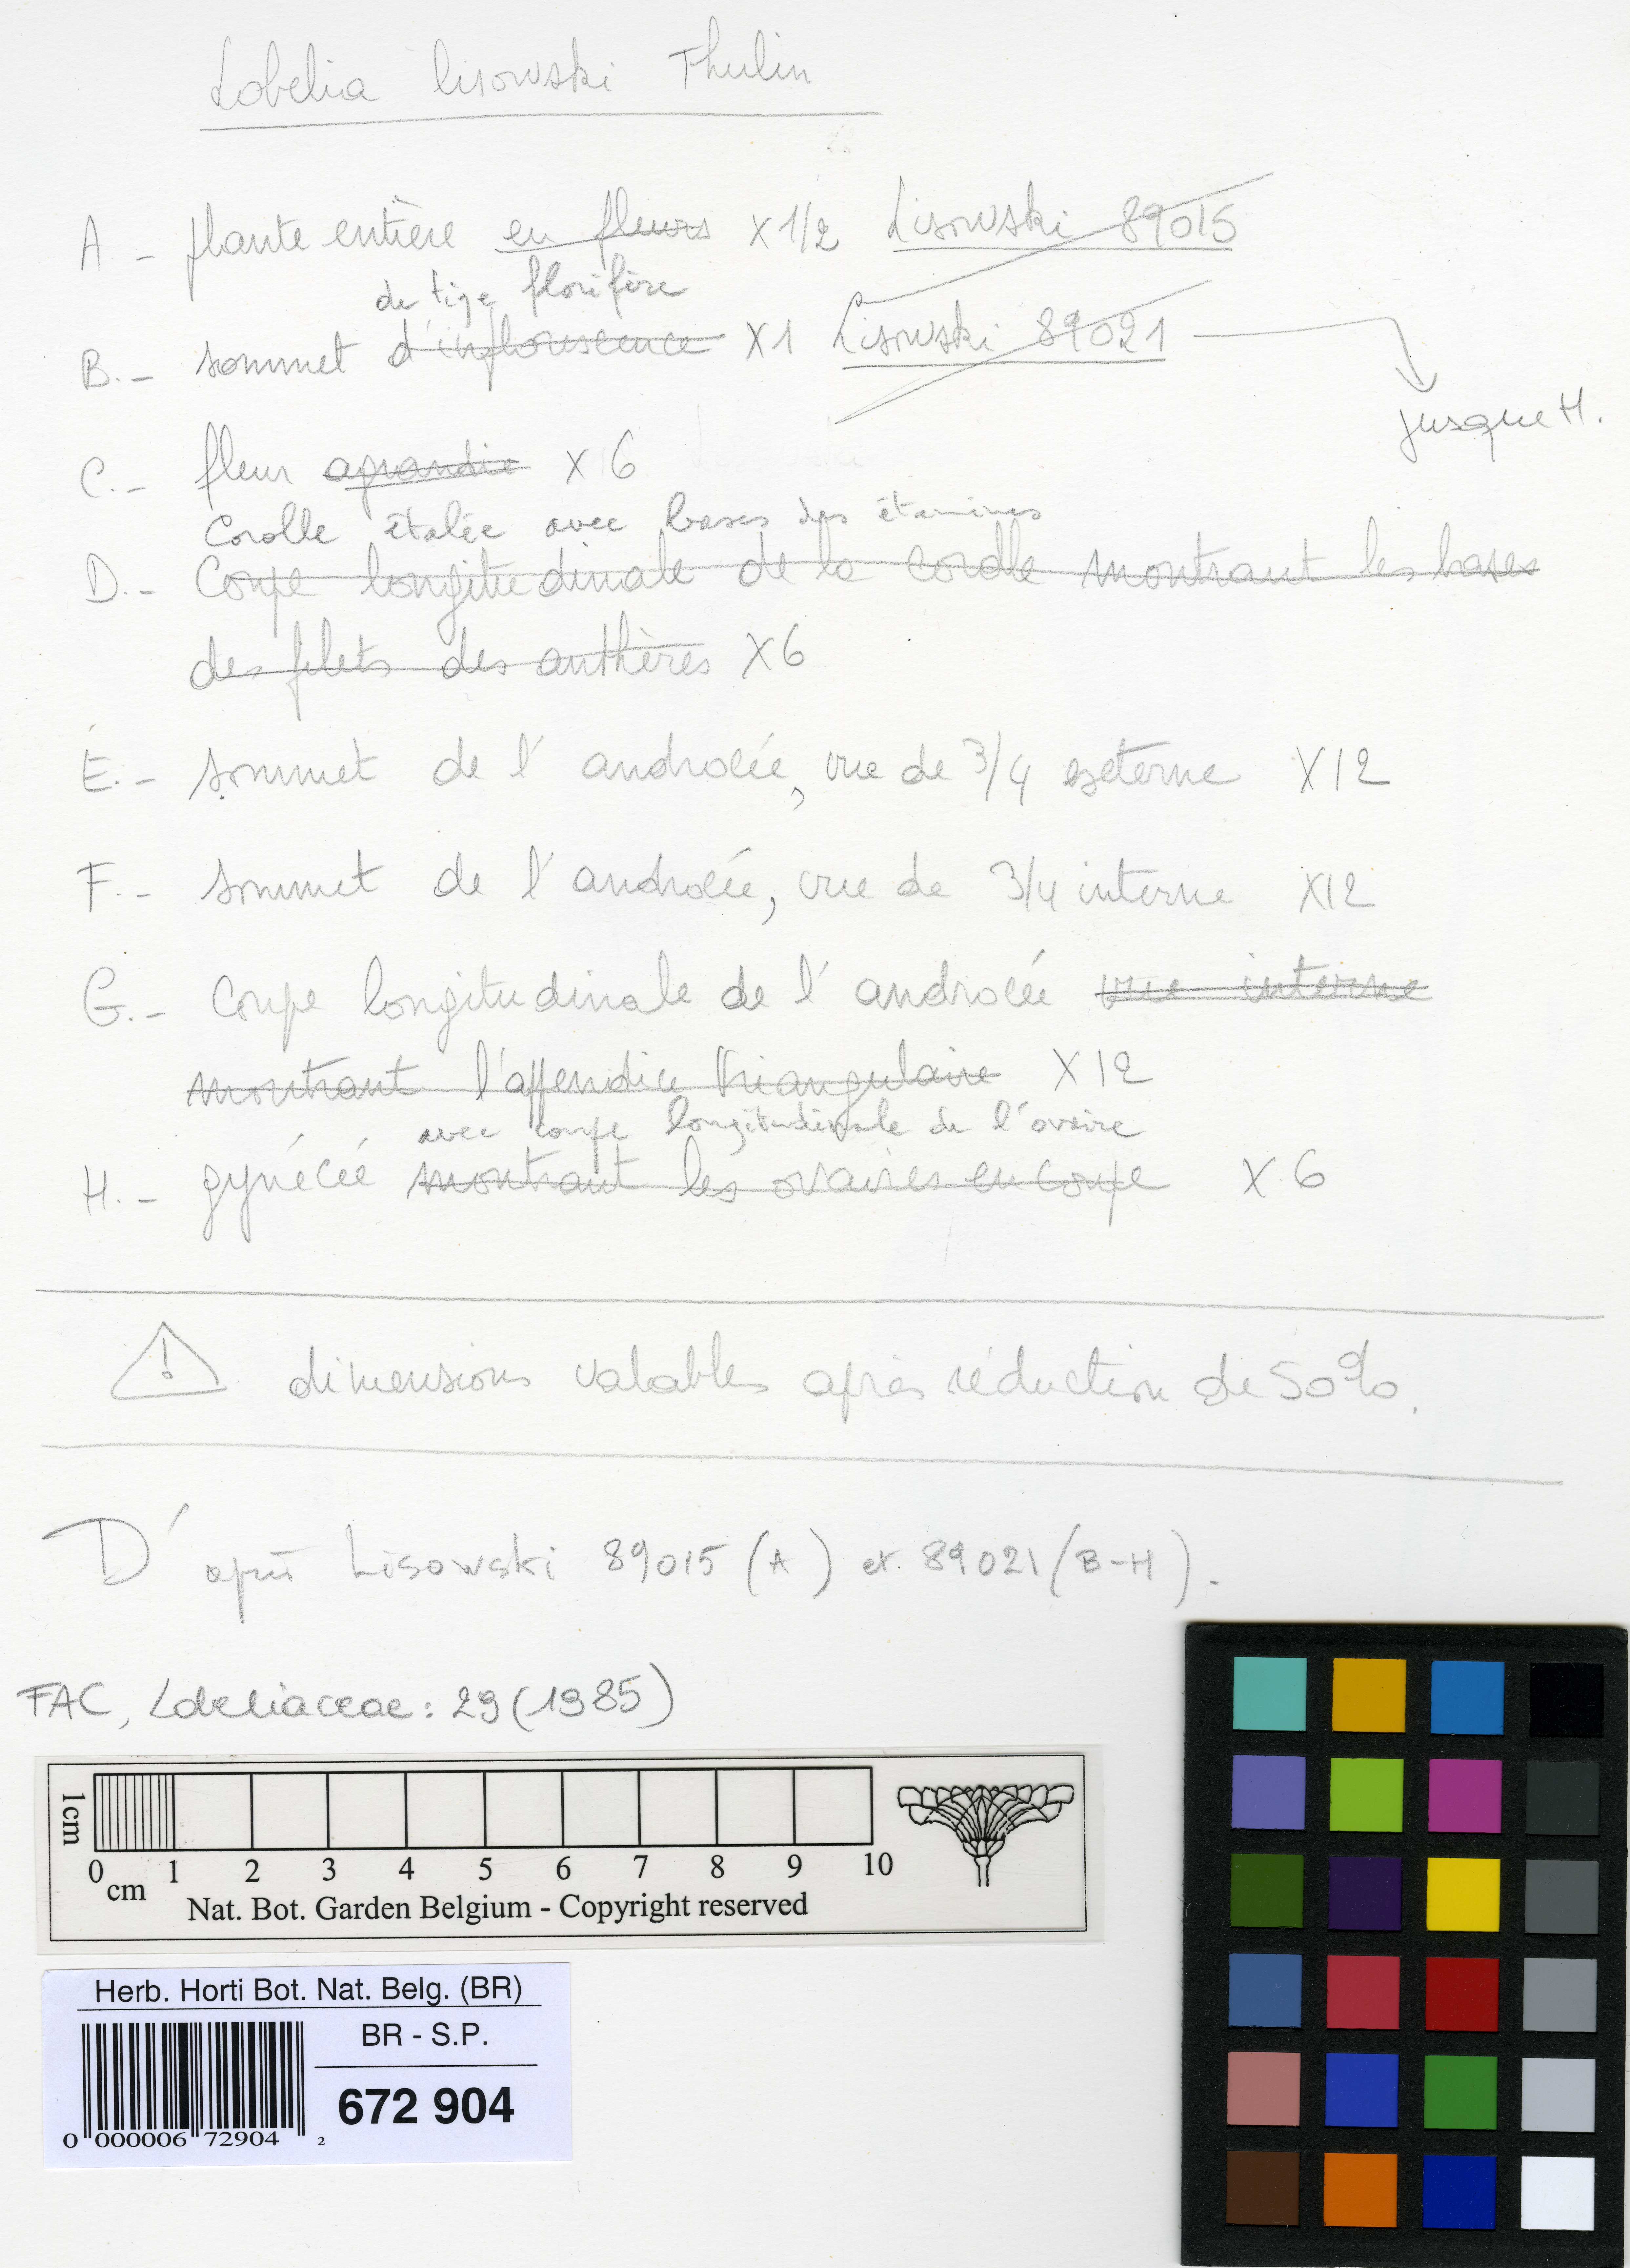 Lobelia lisowski Thulin
A - plante entière en fleurs x 1/2 Lisowski 89015
de tige florifère
B.- sommet d'inflorescence x1 Lisowski 89021
jusque H.
C.- fleur agrandie x 6
Corolle étalée avec bases des étamines
D.- Coupe longitudinale de la corolle montrant les bases
des filets des anthères x6
E.- sommet de l'androcée, vue de 3/4 externe x12
F.- sommet de l'androcée, vue de 3/4 interne x12
G.- Coupe longitudinale de l'androcée vue interne
montrant l'appendice triangulaire x12
avec coupe longitudinale de l'ovaire
H.- gynécée montrant les ovaires en coupe x 6
! dimensions valables après réduction de 50%.
D'après Lisowski 89015 (A) et 89021 (B-H).
FAC, Lobeliaceae: 29 (1985)
1cm
0 1 2 3 4 5 6 7 8 9 10
cm
Nat. Bot. Garden Belgium - Copyright reserved
Herb. Horti Bot. Nat. Belg. (BR)
BR - S.P.
672 904
0 000006 72904 2